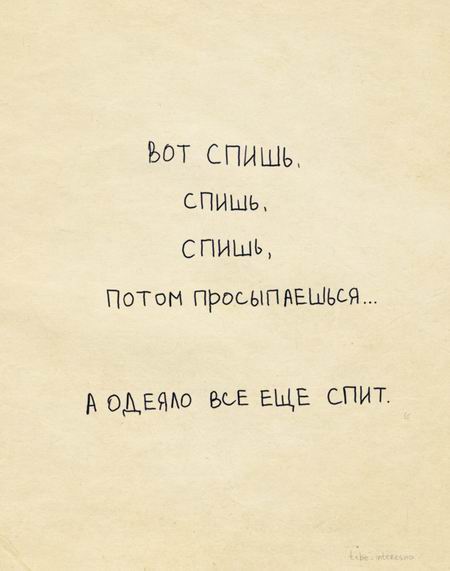 ВОТ СПИШЬ,
СПИШЬ,
СПИШЬ,
ПОТОМ ПРОСЫПАЕШЬСЯ...
А ОДЕЯЛО ВСЕ ЕЩЕ СПИТ.
tebe-interesno